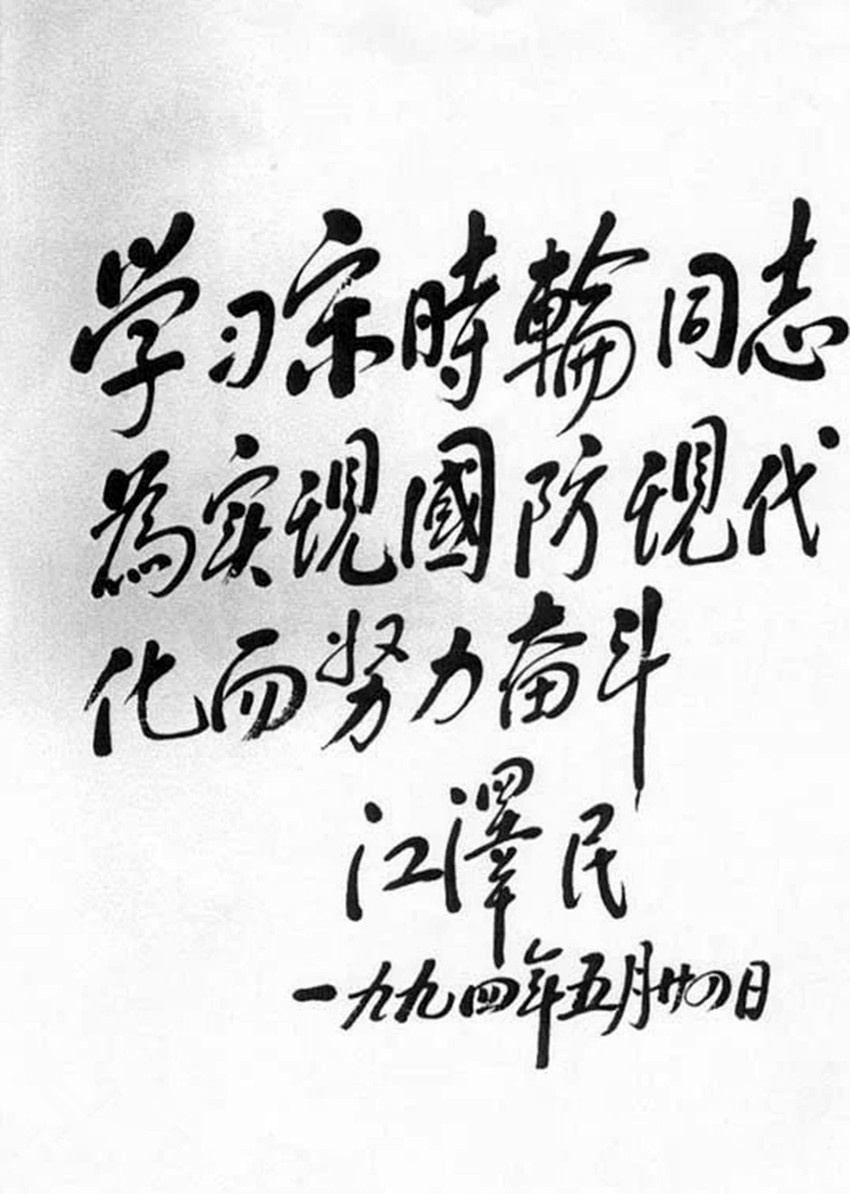 学习宋時輪同志
為实现國防现代
化而努力奋斗
江澤民
一九九四年五月廿四日